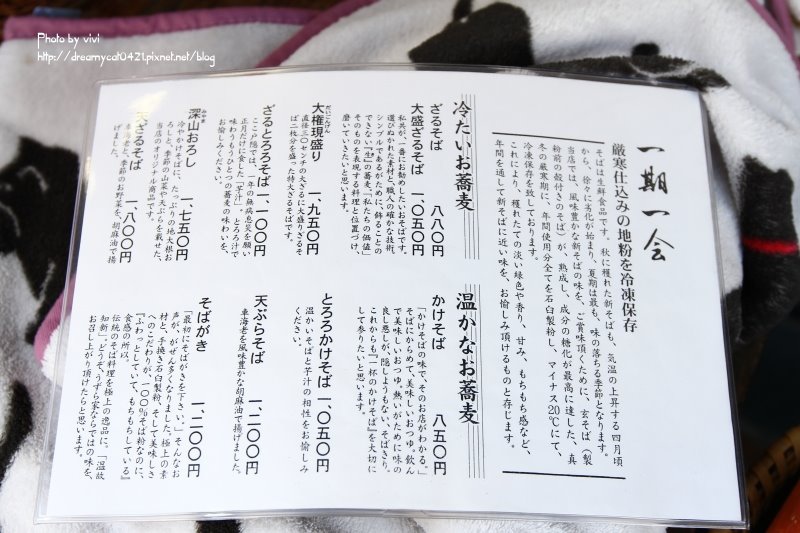 Photo by vivi
http://dreamycat0421.pixnet.net/blog
一期一会
厳寒仕込みの地粉を冷凍保存
そばは生鮮食品です。秋に穫れた新そばも、気温の上昇する四月頃
から、徐々に劣化が始まり、夏期は最も、味の落ちる季節となります。
当店では、風味豊かな新そばの味を、ご賞味頂くために、玄そば(製
粉前の殻付きのそば)が、熟成し、成分の糖化が最高に達した、真
冬の厳寒期に、年間使用分全てを石臼製粉し、マイナス20℃にて、
冷凍保存を致しております。
これにより、穫れたての淡い緑色や香り、甘み、もちもち感など、
年間を通して新そばに近い味を、お愉しみ頂けるものと存じます。
冷たいお蕎麦
ざるそば 八八〇円
大盛ざるそば 一、〇五〇円
私共が、一番にお勧めしたいおそばです。
選びぬかれた素材と、職人の確かな技術、
シンプルであるがために、飾ることの
できない「生」の蕎麦。「私たちの価値」
そのものを表現する料理と位置づけ、
磨いていきたいと思います。
だいごんげん
大権現盛り 一、九五〇円
直径三〇センチの大ざるに大盛りざるそ
ば二枚分を盛った特大ざるそばです。
ざるとろろそば 一、一〇〇円
ここ戸隠では、一年の無病息災を願い
正月だけに食した「芋汁」。とろろ汁で
味わうもうひとつの蕎麦の味わいを、
お愉しみください。
みやま
深山おろし 一、七五〇円
冷やかけそばに、たっぷりの地大根お
ろしと、季節の山菜や天ぷらを載せた、
当店のオリジナル商品です。
天ざるそば 一、八〇〇円
車海老と、季節のお野菜を、胡麻油で揚
げました。
温かなお蕎麦
かけそば 八五〇円
「かけそばの味で、そのお店がわかる。」
そばにからめて、美味しいおつゆ。飲ん
で美味しいおつゆ。熱いがために味の
良し悪しが、隠しようもない、そばぎり。
これからも「一杯のかけそば」を大切に
して参りたいと思います。
とろろかけそば 一、〇五〇円
温かいそばと芋汁の相性をお愉しみ
ください。
天ぷらそば 一、二〇〇円
車海老を風味豊かな胡麻油で揚げました。
そばがき 一、二〇〇円
「最初にそばがきを下さい。」そんなお
声が、がぜん多くなりました。極上の素
材と、手挽き石臼製粉、そして美味しさ
へのこだわりが、一〇〇%そば粉なのに、
『ふわっとしていて、もちもちしている』
食感の所以。
伝統のそば料理を極上の逸品に、「温故
知新」。どうぞ、うずら家ならではの味を、
お召し上がり頂けたらと思います。